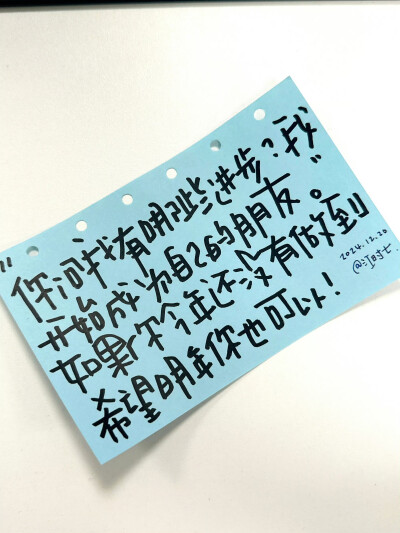 “你问我有哪些进步？我
开始成为自己的朋友。”
如果你今年还没有做到
希望明年你也可以！
2024.12.20